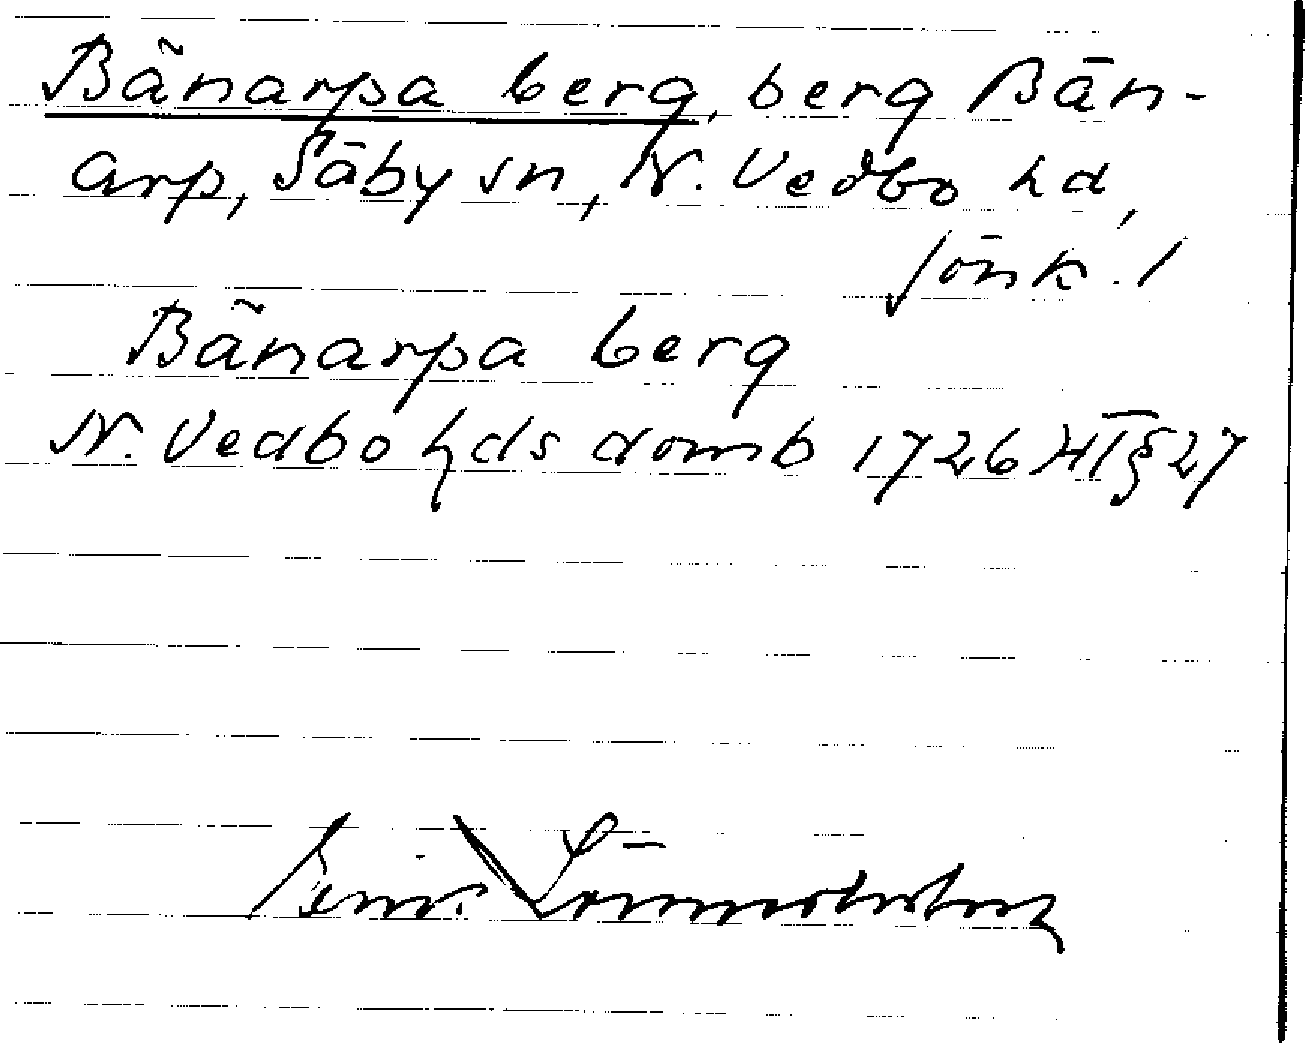 Bänarpa berg, berg Bän-
arp, Säby sn, N. Vedbo hd,
Jönk. l
Bänarpa berg
N. Vedbo hds domb 1726 HT § 27